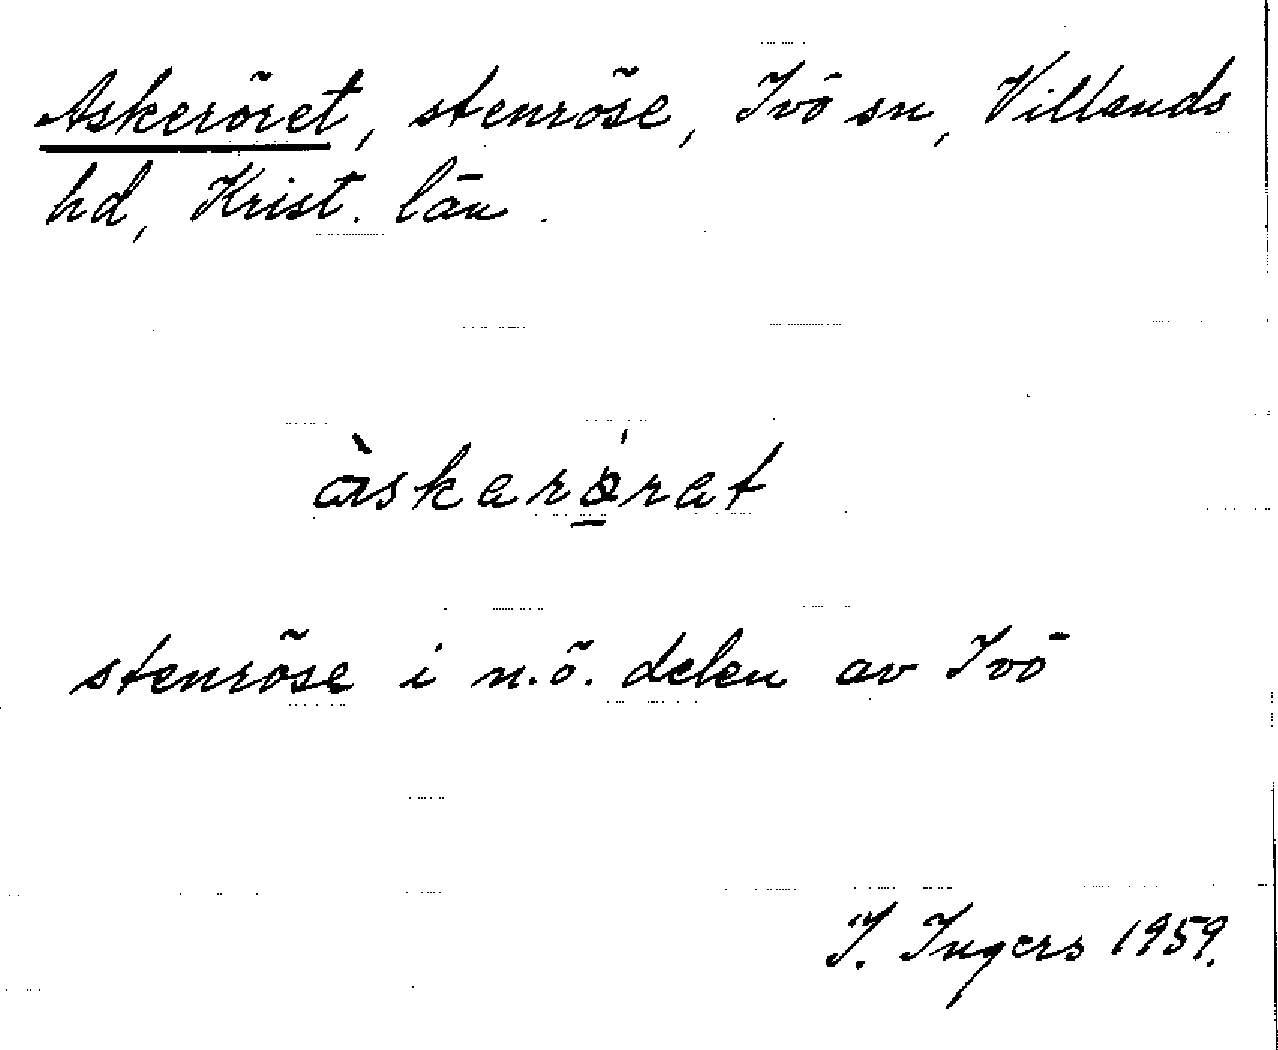 Askeröret, stenröse, Ivö sn, Villands
hd, Krist. län.
àskarǿ̱rat
stenröse i n.ö. delen av Ivö
I. Ingers 1959.